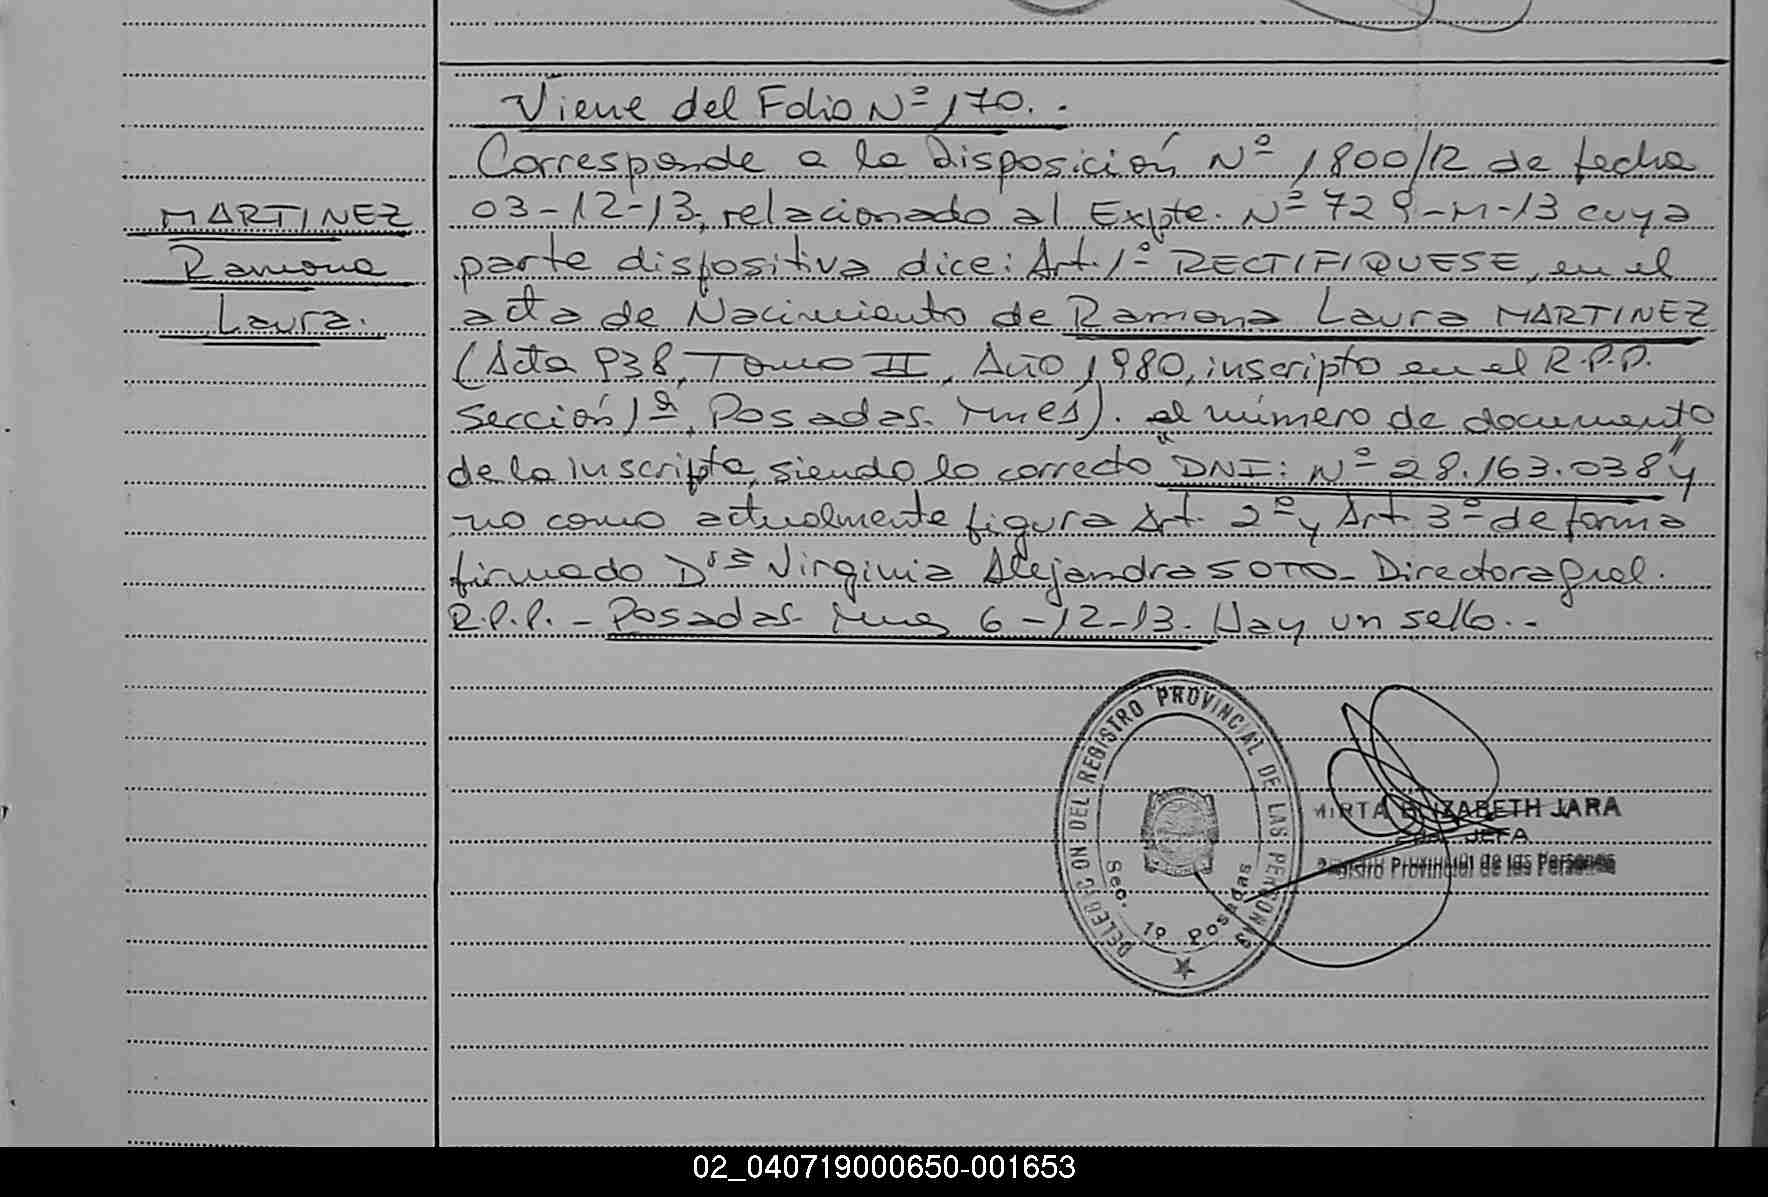 Viene del Folio Nº 170..
Corresponde a la Disposición Nº 1800/12 de fecha
MARTINEZ 03-12-13, relacionado al Expte. Nº 729-M-13 cuya
Ramona parte dispositiva dice: Art. 1º RECTIFIQUESE, en el
Laura. acta de Nacimiento de Ramona Laura MARTINEZ
(Acta 938, Tomo II, Año 1980, inscripto en el R.P.P.
Sección 1ª, Posadas. Mnes). el número de documento
de la inscripta, siendo lo correcto "DNI: Nº 28.163.038" y
no como actualmente figura Art. 2º y Art. 3º de forma
firmado Drª Virginia Alejandra SOTO - Directora Gral.
R.P.P. - Posadas. Mnes 6-12-13. Hay un sello..-
DELEGACION DEL REGISTRO PROVINCIAL DE LAS PERSONAS
Sec. 1ª Posadas
MIRTA ELIZABETH JARA
JEFA
Registro Provincial de las Personas
02_040719000650-001653